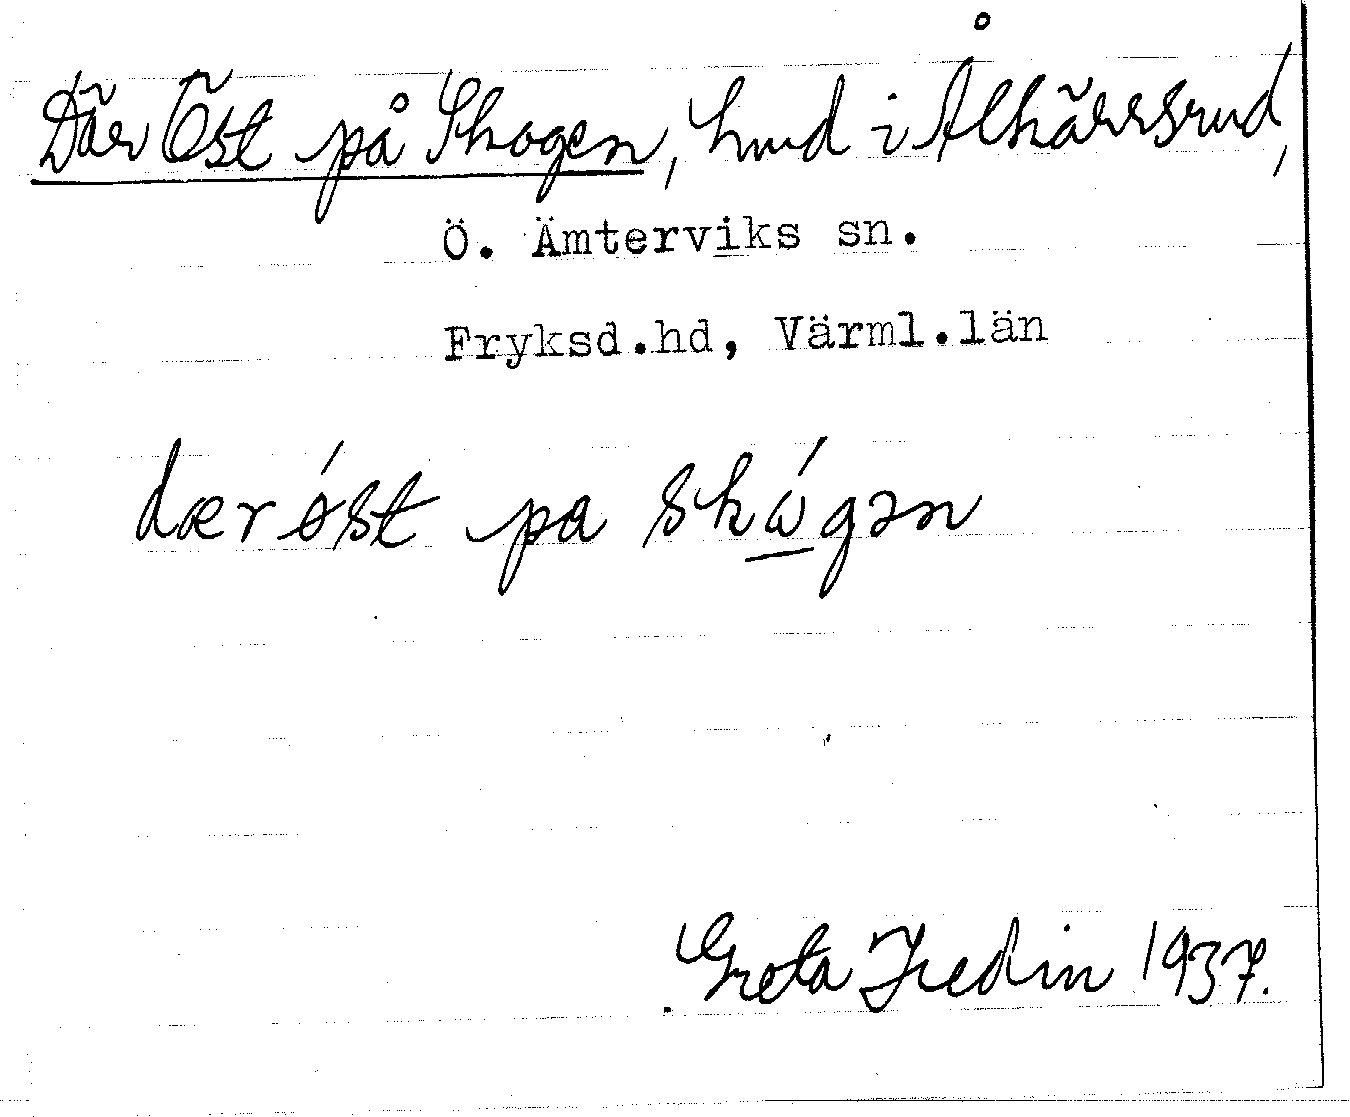 Där Öst på Skogen, hmd i Ålkärrsrud,
Ö. Ämterviks sn.
Fryksd.hd, Värml.län
dær ǿst pa skώgən
Greta Fredin 1937.